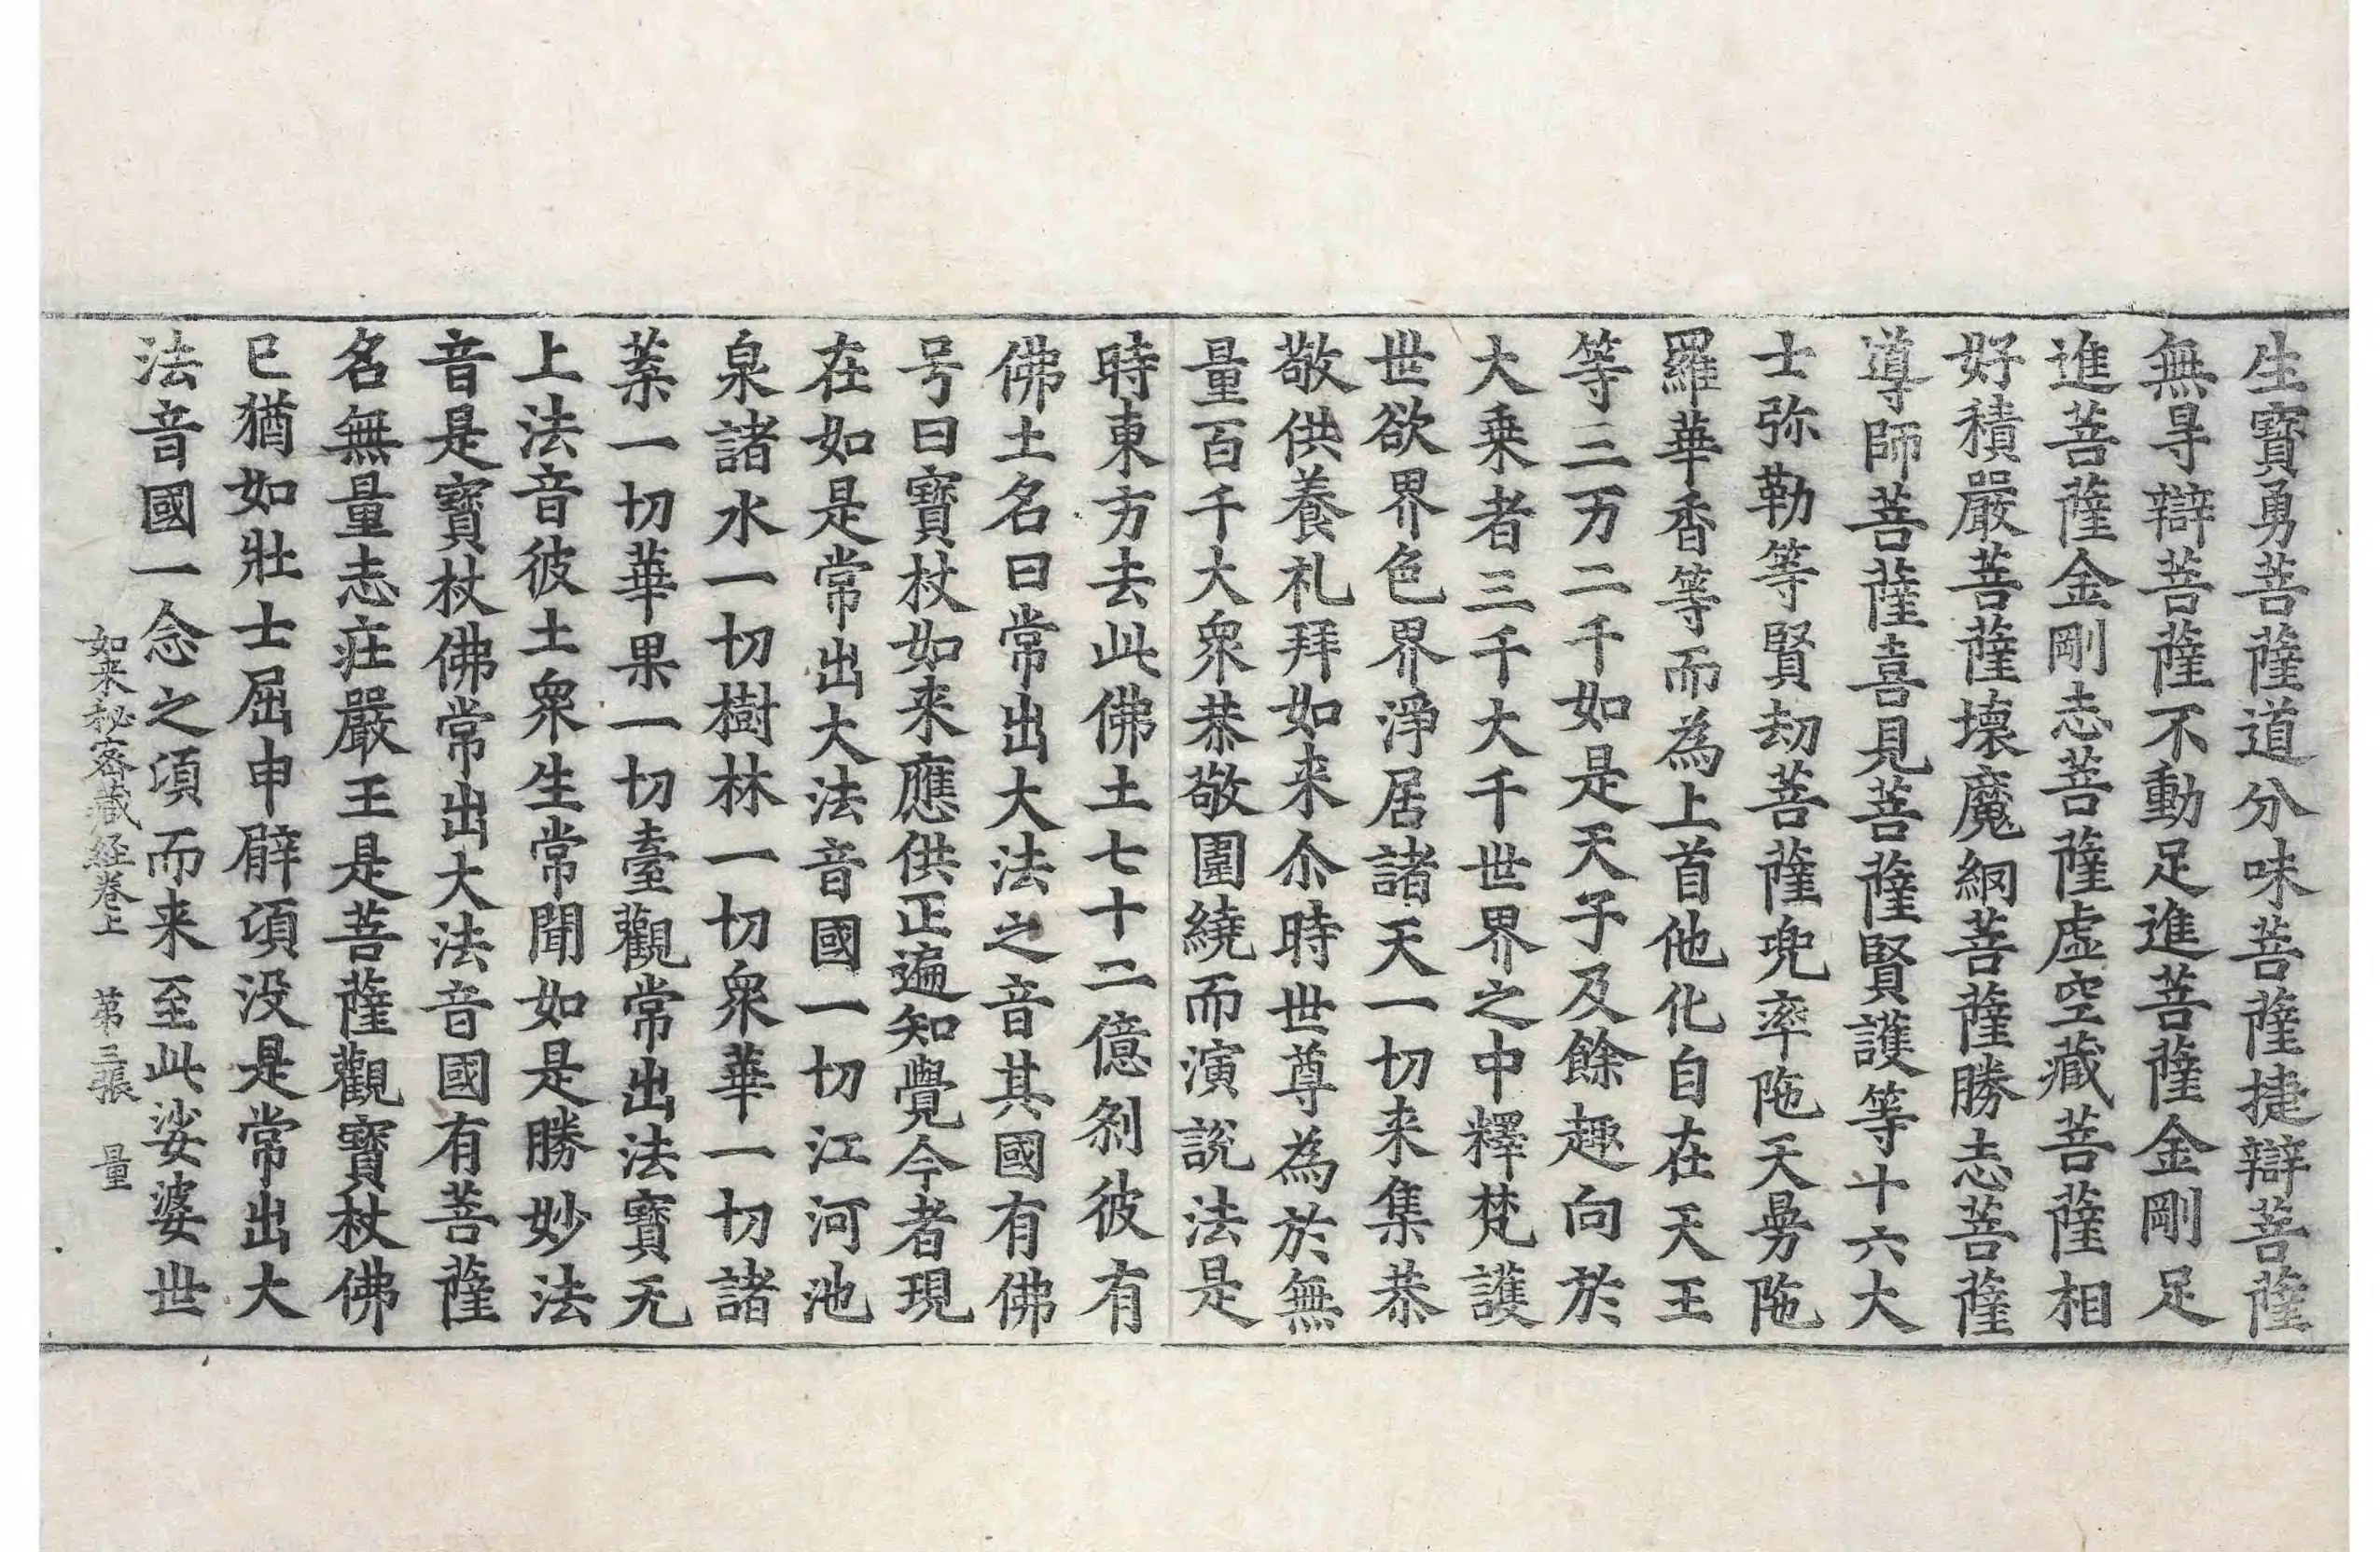 生寶勇菩薩道分味菩薩捷辯菩薩
無㝵辯菩薩不動足進菩薩金剛足
進菩薩金剛志菩薩虛空藏菩薩相
好積嚴菩薩壞魔網菩薩勝志菩薩
導師菩薩喜見菩薩賢護等十六大
士弥勒等賢劫菩薩兜率陁天曼陁
羅華香等而為上首他化自在天王
等三万二千如是天子及餘趣向於
大乘者三千大千世界之中釋梵護
世欲界色界淨居諸天一切来集恭
敬供養礼拜如来尒時世尊為於無
量百千大衆恭敬圍繞而演說法是
時東方去此佛土七十二億剎彼有
佛土名曰常出大法之音其國有佛
号曰寶杖如来應供正遍知覺今者現
在如是常出大法音國一切江河池
泉諸水一切樹林一切衆華一切諸
葉一切華果一切臺觀常出法寶无
上法音彼土衆生常聞如是勝妙法
音是寶杖佛常出大法音國有菩薩
名無量志莊嚴王是菩薩觀寶杖佛
已猶如壯士屈申臂頃没是常出大
法音國一念之頃而来至此娑婆世
如来秘密藏経卷上 第三張 量